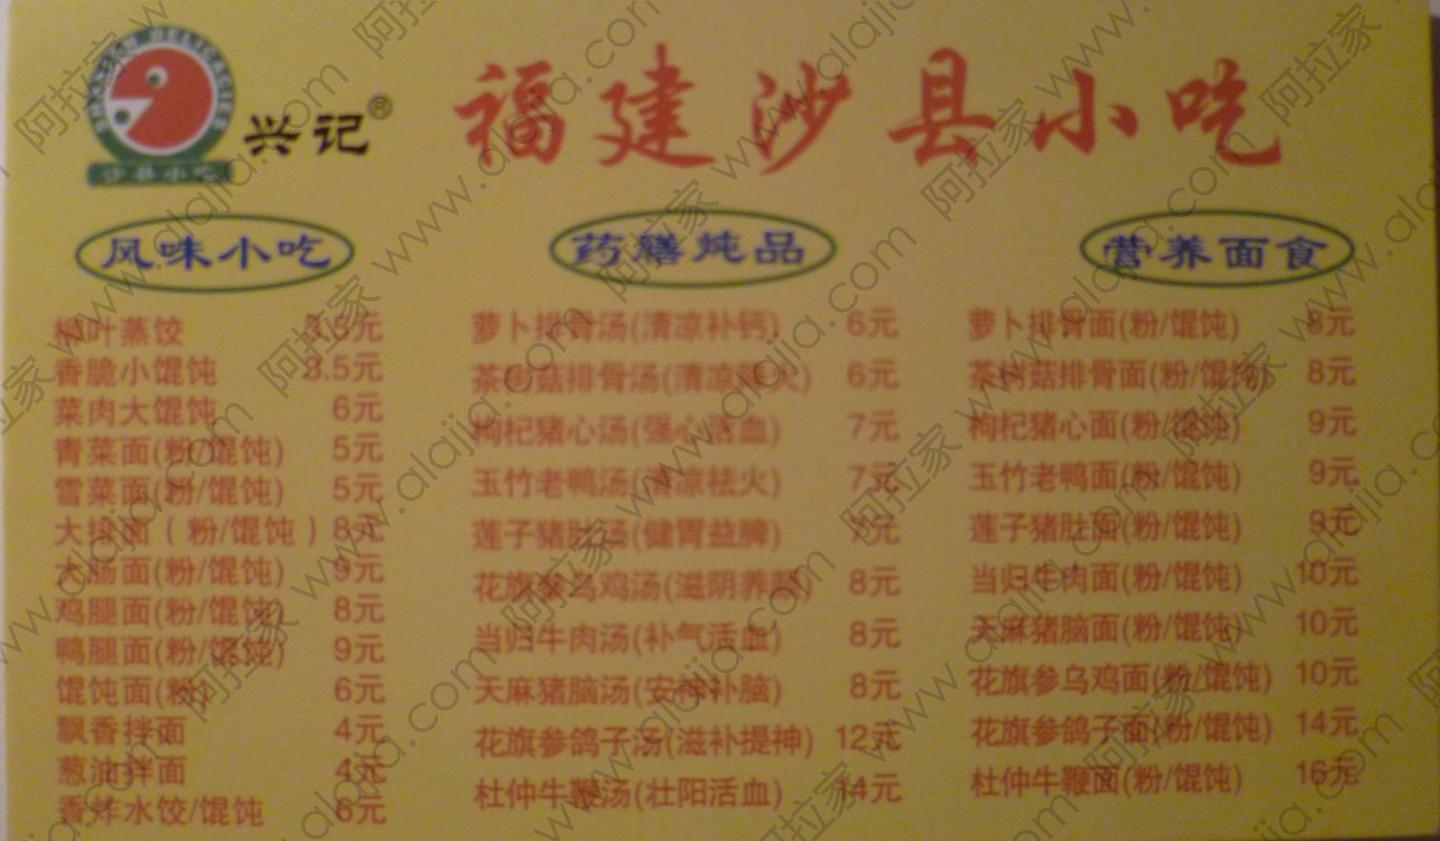 兴记®
福建沙县小吃
沙县小吃
风味小吃
柳叶蒸饺 3.5元
香脆小馄饨 3.5元
菜肉大馄饨 6元
青菜面(粉/馄饨) 5元
雪菜面(粉/馄饨) 5元
大排面(粉/馄饨) 8元
大肠面(粉/馄饨) 9元
鸡腿面(粉/馄饨) 8元
鸭腿面(粉/馄饨) 9元
馄饨面(粉) 6元
飘香拌面 4元
葱油拌面 4元
香炸水饺/馄饨 6元
药膳炖品
萝卜排骨汤(清凉补钙) 6元
茶树菇排骨汤(清凉 火) 6元
枸杞猪心汤(强心活血) 7元
玉竹老鸭汤(清凉祛火) 7元
莲子猪肚汤(健胃益脾) 元
花旗参乌鸡汤(滋阴养颜) 8元
当归牛肉汤(补气活血) 8元
天麻猪脑汤(安神补脑) 8元
花旗参鸽子汤(滋补提神) 12元
杜仲牛鞭汤(壮阳活血) 14元
营养面食
萝卜排骨面(粉/馄饨) 8元
茶树菇排骨面(粉/馄饨) 8元
枸杞猪心面(粉/馄饨) 9元
玉竹老鸭面(粉/馄饨) 9元
莲子猪肚面(粉/馄饨) 9元
当归牛肉面(粉/馄饨) 10元
天麻猪脑面(粉/馄饨) 10元
花旗参乌鸡面(粉/馄饨) 10元
花旗参鸽子面(粉/馄饨) 14元
杜仲牛鞭面(粉/馄饨) 16元
阿拉家 www.alajia.com